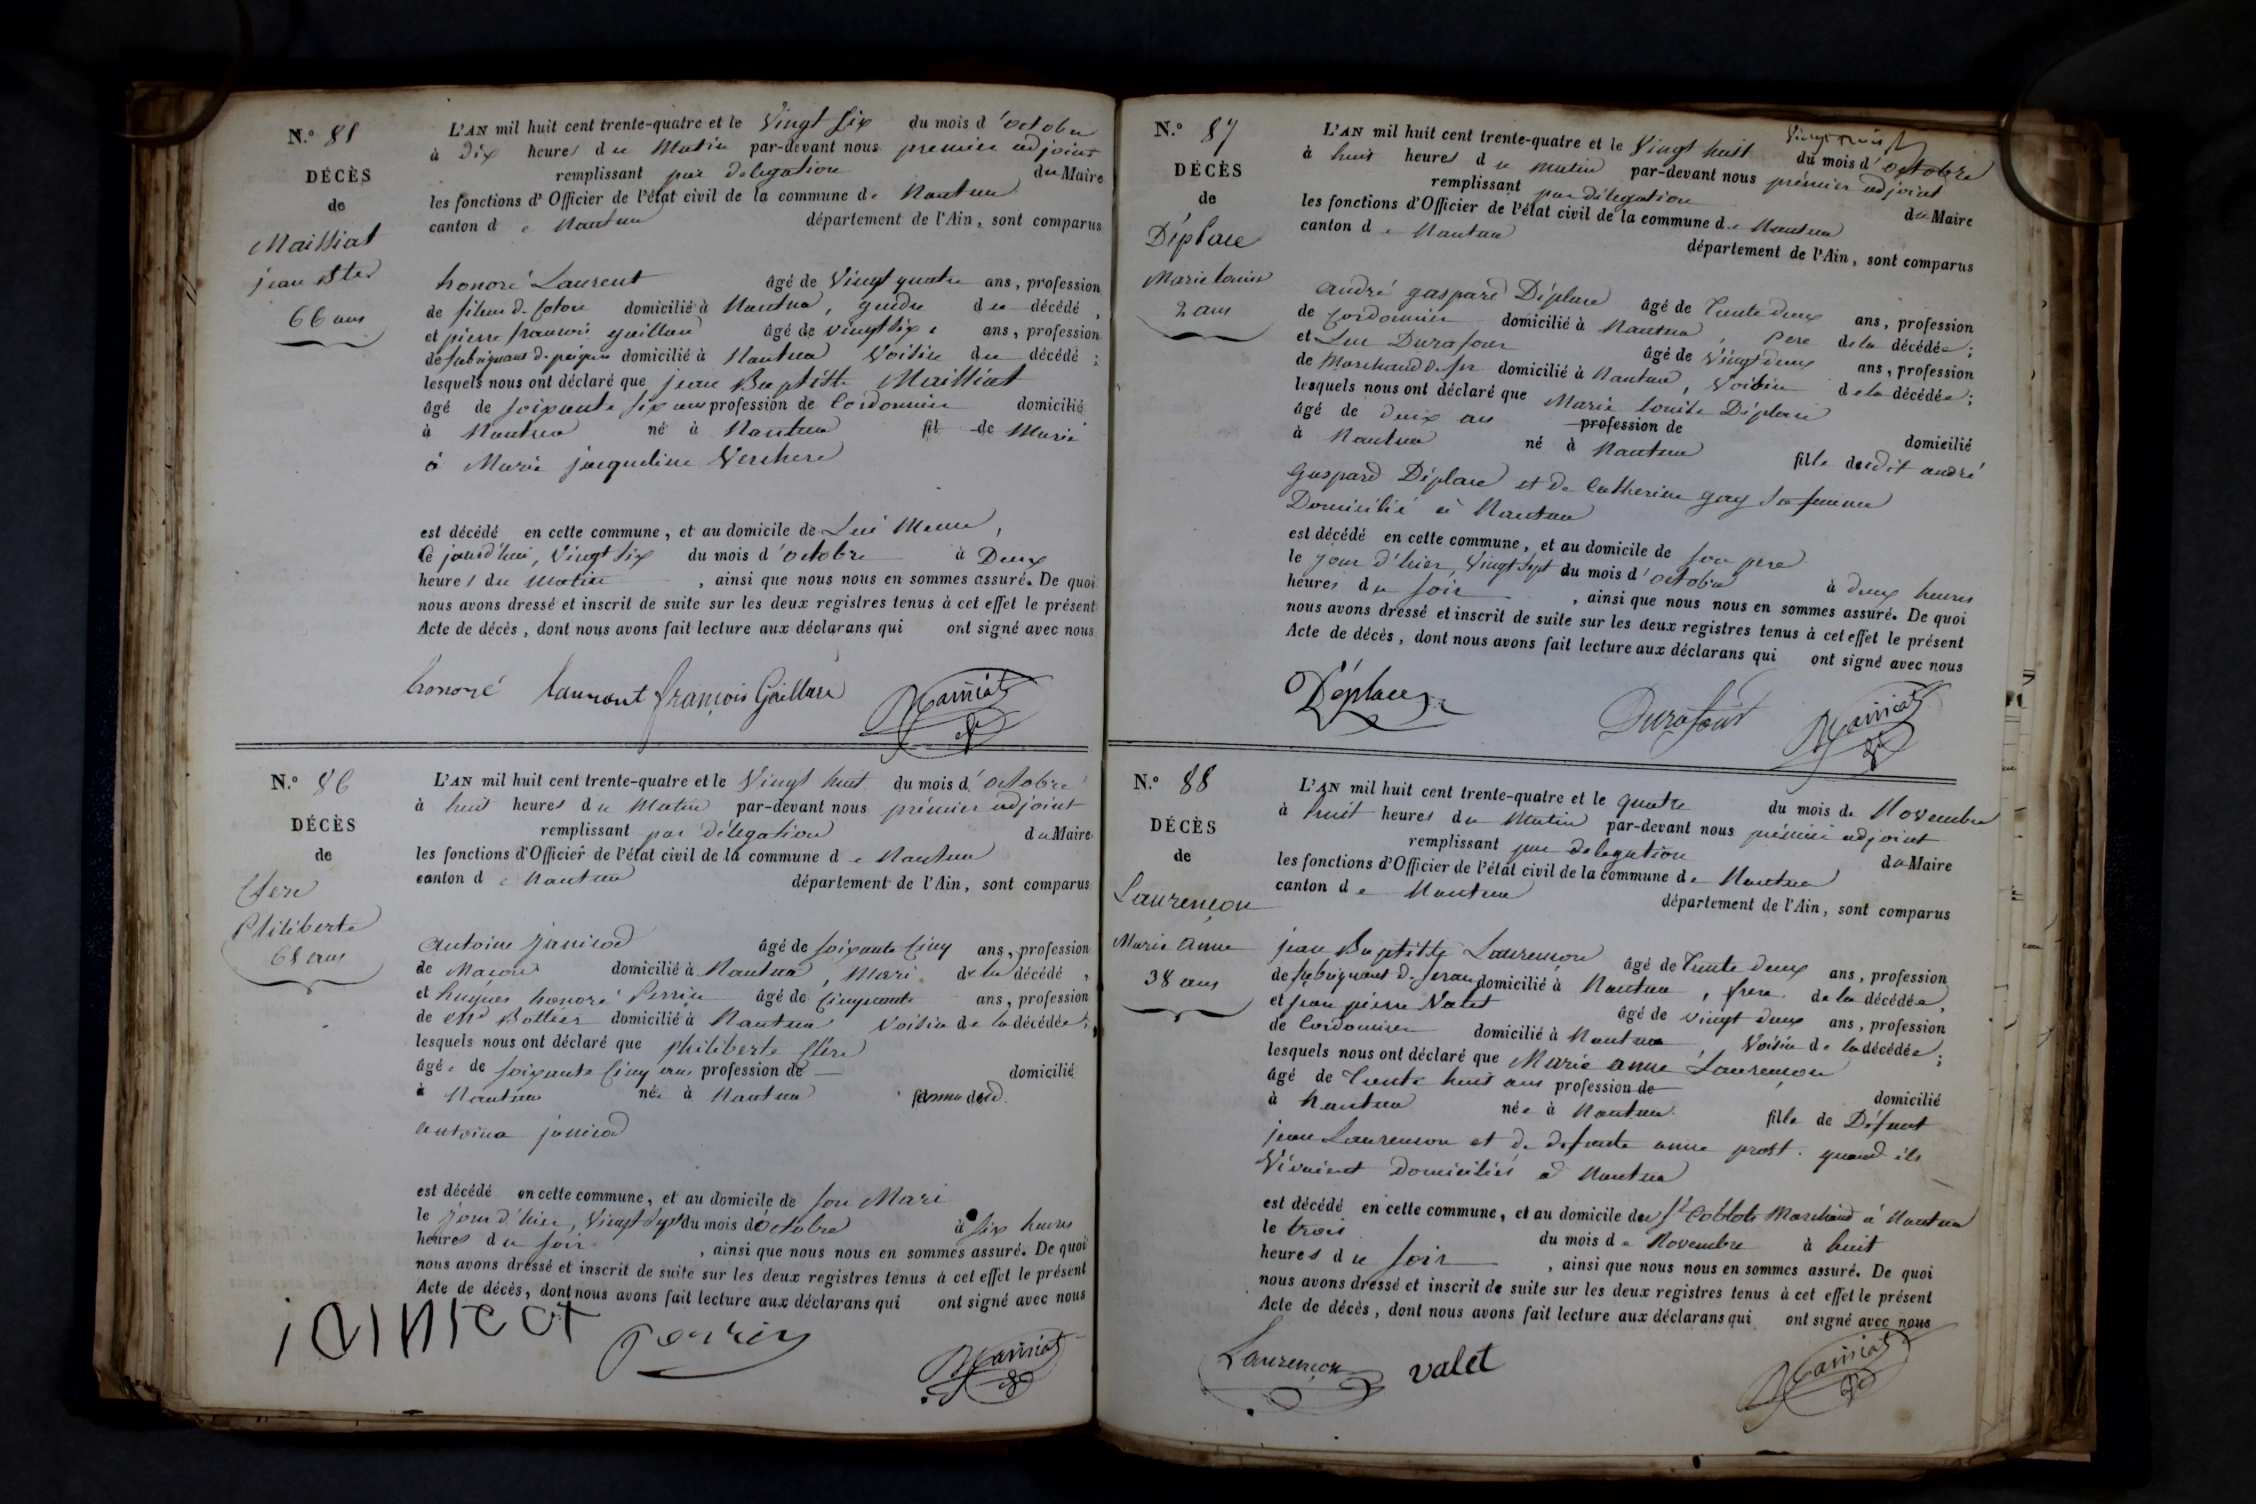 N.° 85
DÉCÈS
de
Mailliat
jean Bte
66 ans
L'AN mil huit cent trente-quatre et le Vingt six du mois d'octobre
à dix heures du Matin par-devant nous premier adjoint
remplissant par délégation du Maire
les fonctions d'Officier de l'état civil de la commune de Nantua
canton de Nantua département de l'Ain, sont comparus
honoré Laurent âgé de Vingt quatre ans, profession
de fileur d. Coton domicilié à Nantua, gendre du décédé,
et pierre francois gaillard âgé de vingt six ans, profession
de fabriquant de peignes domicilié à Nantua Voisin du décédé;
lesquels nous ont déclaré que jean Baptiste Mailliat
âgé de soixante six ans profession de Cordonnier domicilié
à Nantua né à Nantua fil de Marié
à Marie jacqueline Verchere
est décédé en cette commune, et au domicile de Lui Meme,
Ce jourd'hui, Vingt six du mois d'octobre à Deux
heures du Matin, ainsi que nous nous en sommes assuré. De quoi
nous avons dressé et inscrit de suite sur les deux registres tenus à cet effet le présent
Acte de décès, dont nous avons fait lecture aux déclarans qui ont signé avec nous
honoré laurant françois Gaillard
N.° 86
DÉCÈS
de
Clere
Philiberte
65 ans
L'AN mil huit cent trente-quatre et le Vingt huit du mois d'octobre
à huit heures du Matin par-devant nous prémier adjoint
remplissant par délégation du Maire
les fonctions d'Officier de l'état civil de la commune de Nantua
canton de Nantua département de l'Ain, sont comparus
antoine janicod âgé de soixante Cinq ans, profession
de Maçon domicilié à Nantua, Mari de la décédé,
et hugues honoré Perrin âgé de Cinquante ans, profession
de Md Bottier domicilié à Nantua Voisin de la décédée;
lesquels nous ont déclaré que philiberte Clere
âgé e de soixante Cinq ans profession de domicilié
à Nantua née à Nantua femme dud.
antoine janicod
est décédé en cette commune, et au domicile de son Mari
le jour d'hier, Vingt Sept du mois d'octobre à six heures
heures du soir, ainsi que nous nous en sommes assuré. De quoi
nous avons dressé et inscrit de suite sur les deux registres tenus à cet effet le présent
Acte de décès, dont nous avons fait lecture aux déclarans qui ont signé avec nous
janicot perrin
N.° 87
DÉCÈS
de
Déplace
Marie Louise
2 ans
L'AN mil huit cent trente-quatre et le Vingt huit du mois d'octobre
à huit heures du matin par-devant nous prémier adjoint
remplissant par délégation du Maire
les fonctions d'Officier de l'état civil de la commune de Nantua
canton de Nantua département de l'Ain, sont comparus
andré gaspard Déplace âgé de Trente deux ans, profession
de cordonnier domicilié à Nantua, Pere de la décédée;
et Luc Durafour âgé de Vingt deux ans, profession
de Marchand d. fer domicilié à Nantua, Voisin de la décédée;
lesquels nous ont déclaré que Marie Louise Déplace
âgé de deux ans profession de domicilié
à Nantua né à Nantua fille dudit andré
gaspard Déplace et de Catherine gay sa femme
Domicilié à Nantua
est décédé en cette commune, et au domicile de son pere
le jour d'hier, Vingt Sept du mois d'octobre à deux heures
heures du soir, ainsi que nous nous en sommes assuré. De quoi
nous avons dressé et inscrit de suite sur les deux registres tenus à cet effet le présent
Acte de décès, dont nous avons fait lecture aux déclarans qui ont signé avec nous
Déplace Durafour
N.° 88
DÉCÈS
de
Laurençon
Marie Anne
38 ans
L'AN mil huit cent trente-quatre et le quatre du mois de Novembre
à huit heures du Matin par-devant nous prémier adjoint
remplissant par délégation du Maire
les fonctions d'Officier de l'état civil de la commune de Nantua
canton de Nantua département de l'Ain, sont comparus
jean Baptiste Laurençon âgé de Trente deux ans, profession
de fabriquant d. domicilié à Nantua, frere de la décédée,
et jean pierre Valet âgé de vingt deux ans, profession
de Cordonnier domicilié à Nantua, Voisin de la décédée;
lesquels nous ont déclaré que Marie anne Laurençon
âgé de Trente huit ans profession de domicilié
à Nantua née à Nantua fille de Défunt
jean Laurençon et de defunte anne prost. quand ils
Vivaient domiciliés à Nantua
est décédé en cette commune, et au domicile du Sr Marchand à Nantua
le trois du mois de Novembre à huit
heures du soir, ainsi que nous nous en sommes assuré. De quoi
nous avons dressé et inscrit de suite sur les deux registres tenus à cet effet le présent
Acte de décès, dont nous avons fait lecture aux déclarans qui ont signé avec nous
Laurençon valet